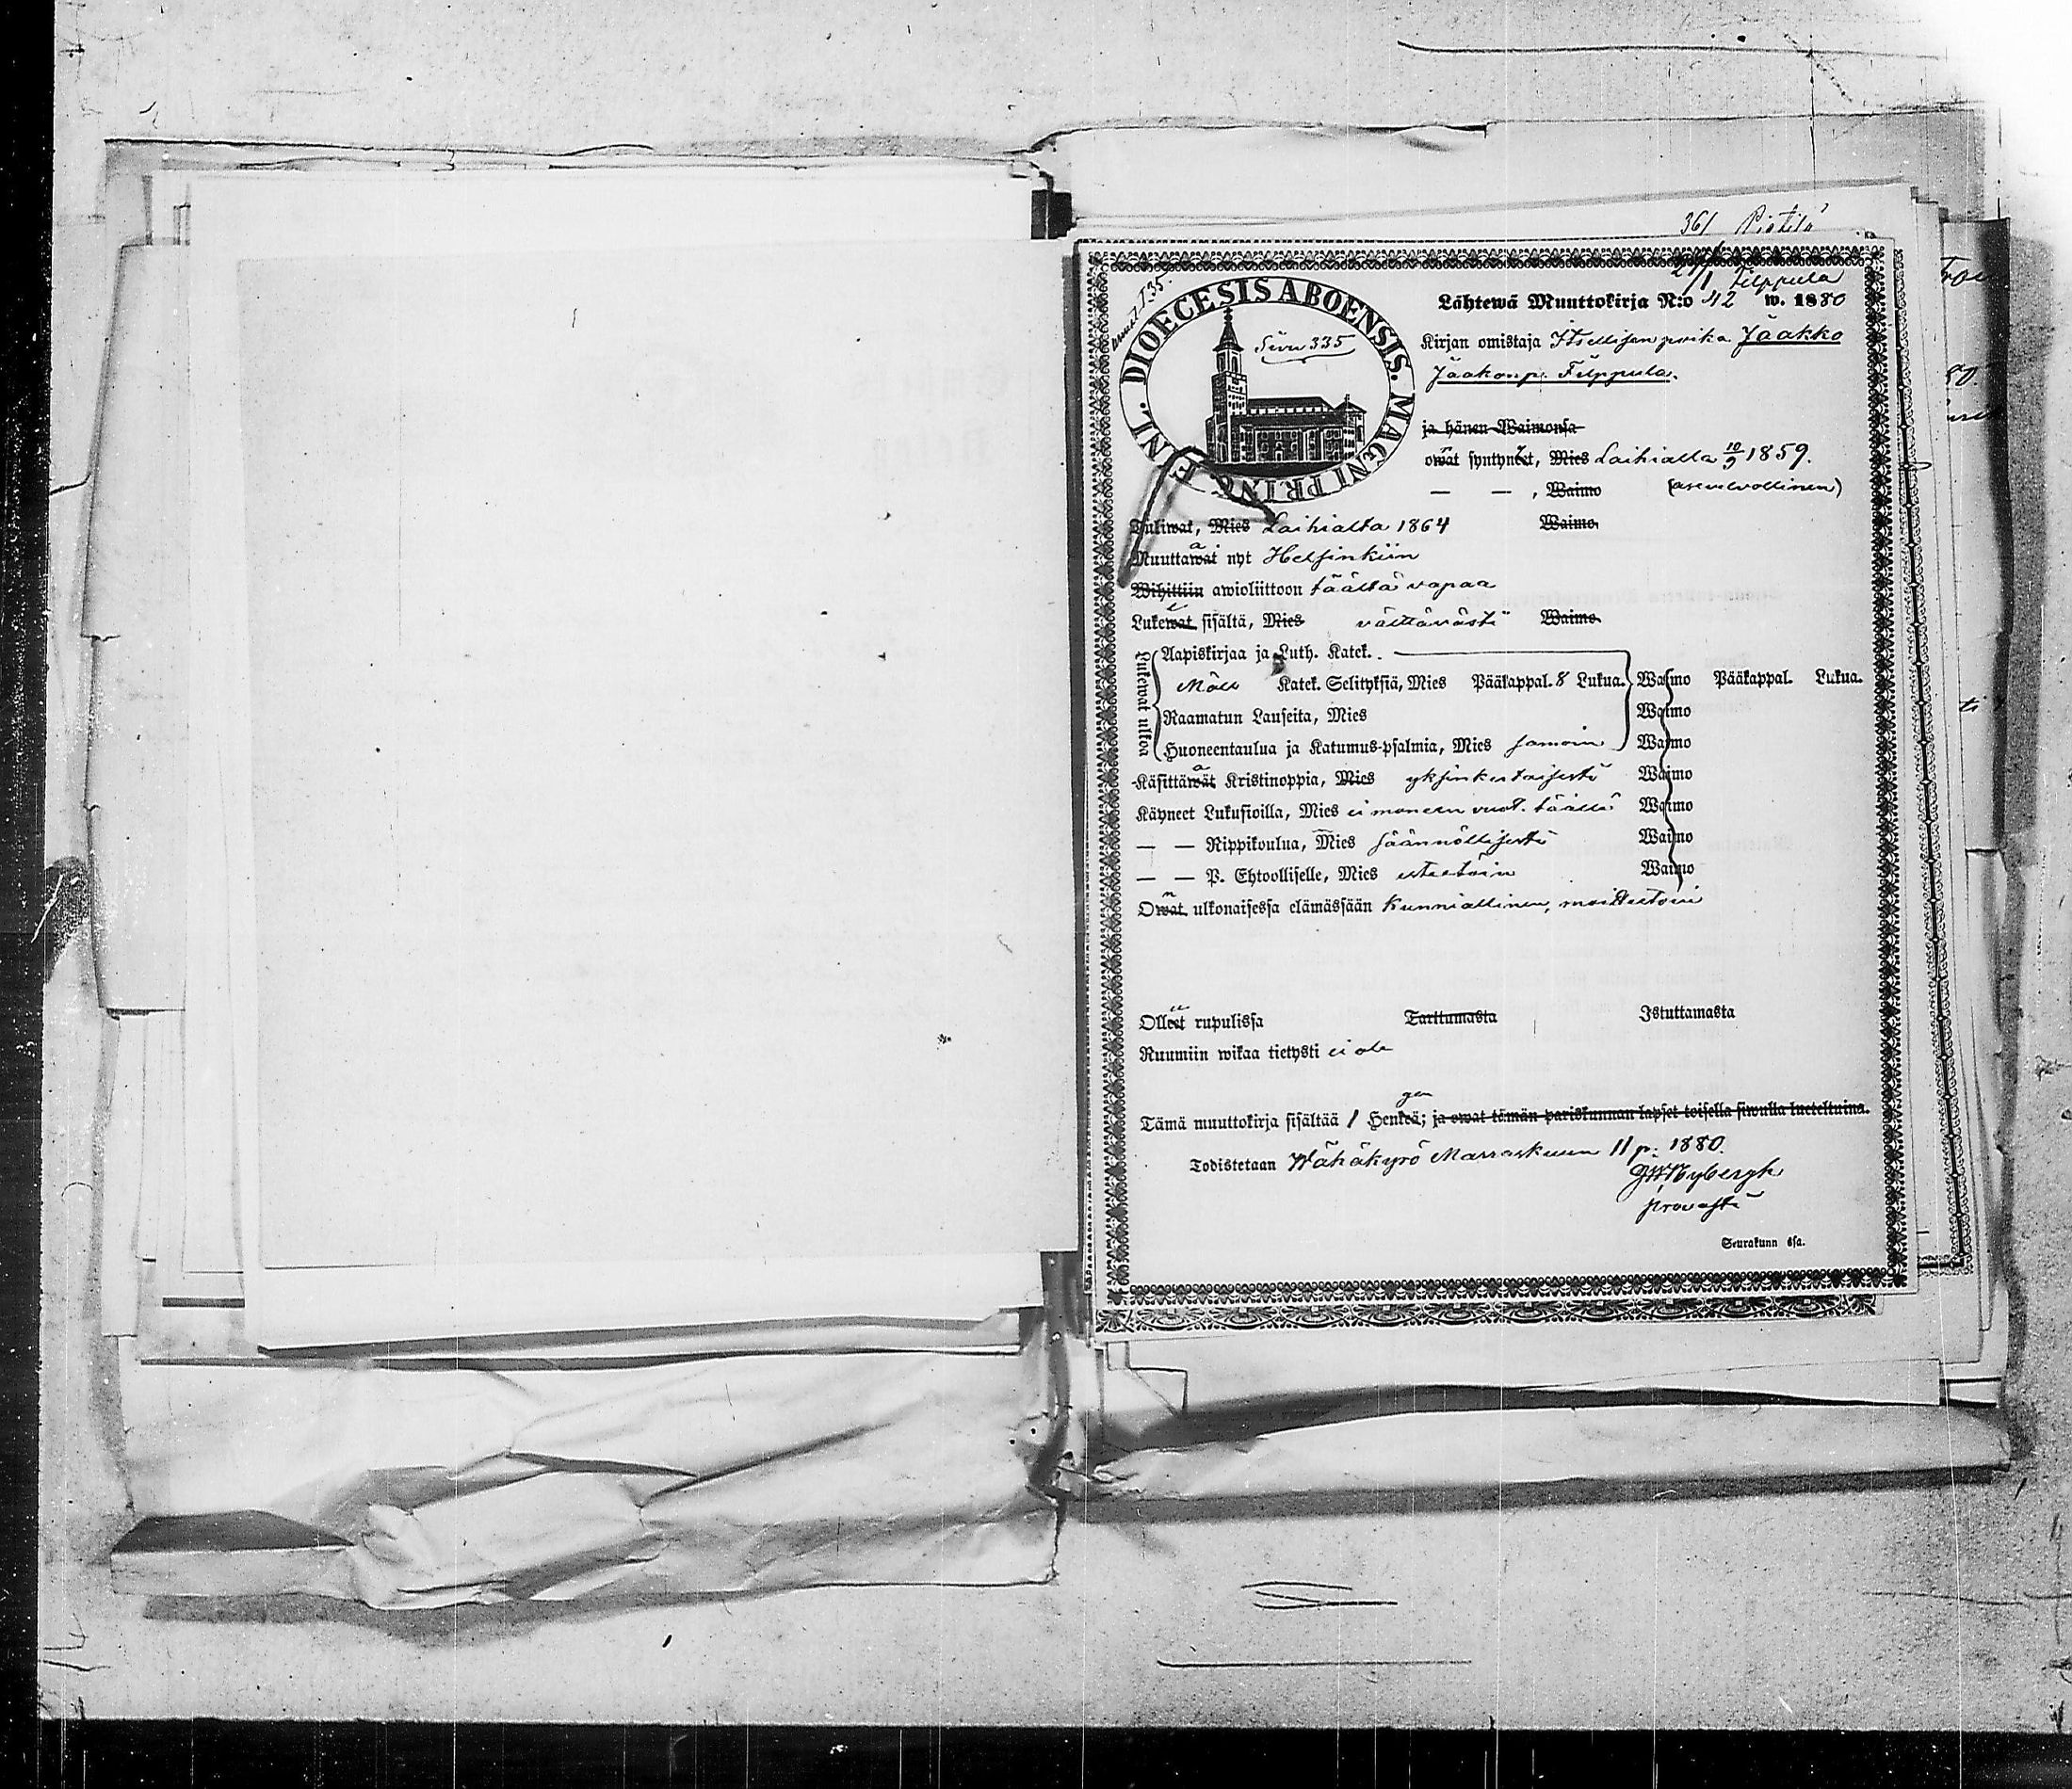 361
27/1 Filppula
Lähtewä Muuttokirja N:o 42 w. 1880
DIOECESIS ABOENSIS. MAGNI PRINC. FINL.
Siwu 335
Kirjan omistaja Itsellisen poika Jaakko
Jaakonp. Filppula.
ja hänen Waimonsa
owat syntynet, Mies Laihialla 10/9 1859.
— — , Waimo (asevelvollinen)
Tuliwat, Mies Laihialta 1864 Waimo
Muuttawat nyt Helsinkiin
Wihittiin awioliittoon täältä vapaa
Lukewat sisältä, Mies välttävästi Waimo
Lukewat ulkoa
Aapiskirjaa ja Luth. Katek.
Katek. Selityksiä, Mies Pääkappal. 8 Lukua. Waimo Pääkappal. Lukua.
Raamatun Lauseita, Mies Waimo
Huoneentaulua ja Katumus-psalmia, Mies samoin Waimo
Käsittäwät Kristinoppia, Mies yksinkertaisesti Waimo
Käyneet Lukusioilla, Mies ei moneen vuot. täällä Waimo
— — Rippikoulua, Mies säännöllisesti Waimo
— — P. Ehtoolliselle, Mies esteetöin Waimo
Owat ulkonaisessa elämässään kunniallinen, moitteetoin
Olleet rupulissa Tarttumasta Istuttamasta
Ruumiin wikaa tietysti ei ole
gen
Tämä muuttokirja sisältää 1 Henkeä; ja owat tämän pariskunnan lapset toisella siwulla lueteltuina.
Todistetaan Wähäkyrö Marraskuun 11 p. 1880.
G W Nybergh
provasti
Seurakunn ssa.